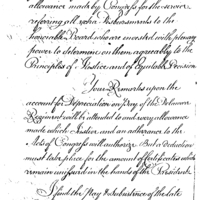 allowance made by Congress for the service
referring all such Disbursements to the
Honorable Board who are invested with plenary
power to determine on them agreeably to the
Principles of Justice and of Equitable Decision
Your Remarks upon the
account for Depreciation on Pay of the Delaware
Regiment will be attended to and every allowance
made which Justice and an adherence to the
Acts of Congress will authorize But a deduction
must take place for the amount of Certificates which
remain unpaid in the hands of the President
I find the Pay & Subsistence of the late